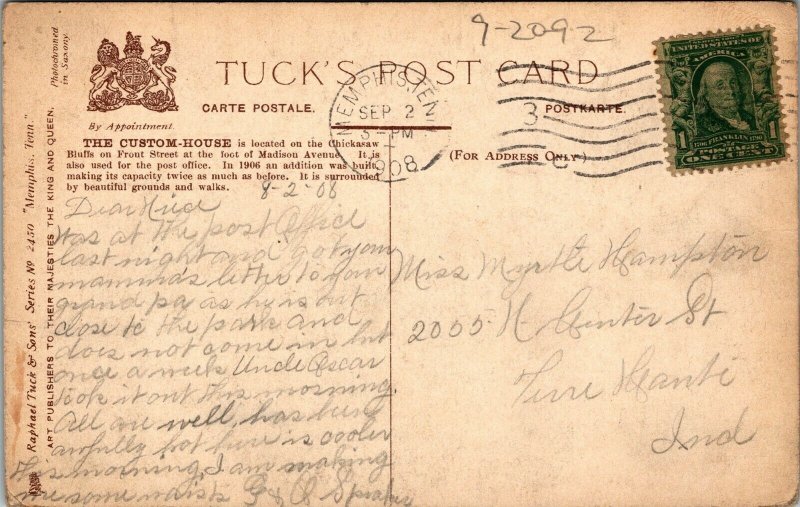 9-2092
TUCK'S POST CARD
CARTE POSTALE.
POSTKARTE.
By Appointment.
(FOR ADDRESS ONLY)
Photochromed
in Saxony.
Raphael Tuck & Sons' Series No 2450 "Memphis, Tenn."
ART PUBLISHERS TO THEIR MAJESTIES THE KING AND QUEEN.
MEMPHIS TENN.
SEP 2
3-PM
1908
3
UNITED STATES OF
AMERICA
1 1
FRANKLIN
ONE CENT
THE CUSTOM-HOUSE is located on the Chickasaw
Bluffs on Front Street at the foot of Madison Avenue. It is
also used for the post office. In 1906 an addition was built,
making its capacity twice as much as before. It is surrounded
by beautiful grounds and walks.
9-2-08
Dear Niece
Was at the post office
last night and got your
mamma's letter to your
grand pa as he is out
close to the park and
does not come in but
once a week Uncle Oscar
took it out this morning.
All are well, has been
awfully hot here is cooler
this morning, I am making
me some waists G & O
Miss Myrtle Hampton
2005 N Center St
Terre Haute
Ind